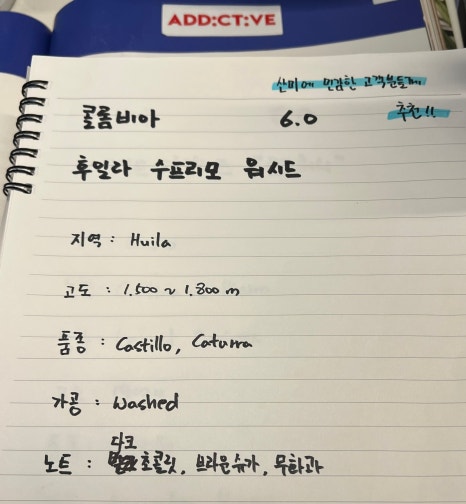 ADD:CT:VE
산미에 민감한 고객분들께
콜롬비아 6.0 추천!!
후일라 수프리모 워시드
지역 : Huila
고도 : 1,500 ~ 1,800 m
품종 : Castillo, Caturra
가공 : Washed
다크
노트 : 초콜릿, 브라운슈가, 무화과